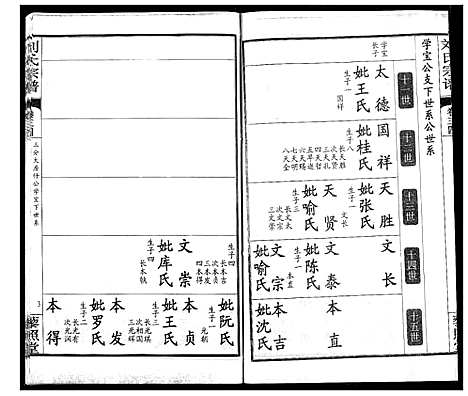 刘氏宗谱
学宝公支下世系公世系
十一世
学宝
长子
太德
妣王氏
生子一
国祥
十二世
国祥
妣桂氏
生子八
长天胜
次天贤
三天孔
四天哲
五早逝
六天赐
七天明
八天全
十三世
天胜
妣张氏
生子一
文长
天贤
妣喻氏
生子三
长文太
次文宗
三文崇
十四世
文长
文泰
妣陈氏
生子一
本直
文宗
妣喻氏
文崇
妣库氏
生子四
长本吉
次本贞
三本发
四本得
十五世
本直
本吉
妣沈氏
妣阮氏
生子一
光朝
本贞
妣王氏
生子三
长光琪
次相国
三光辉
本发
妣罗氏
生子二
长光有
次光润
本得
刘氏宗谱
三分大房行公学宝下世系
3
藜照堂